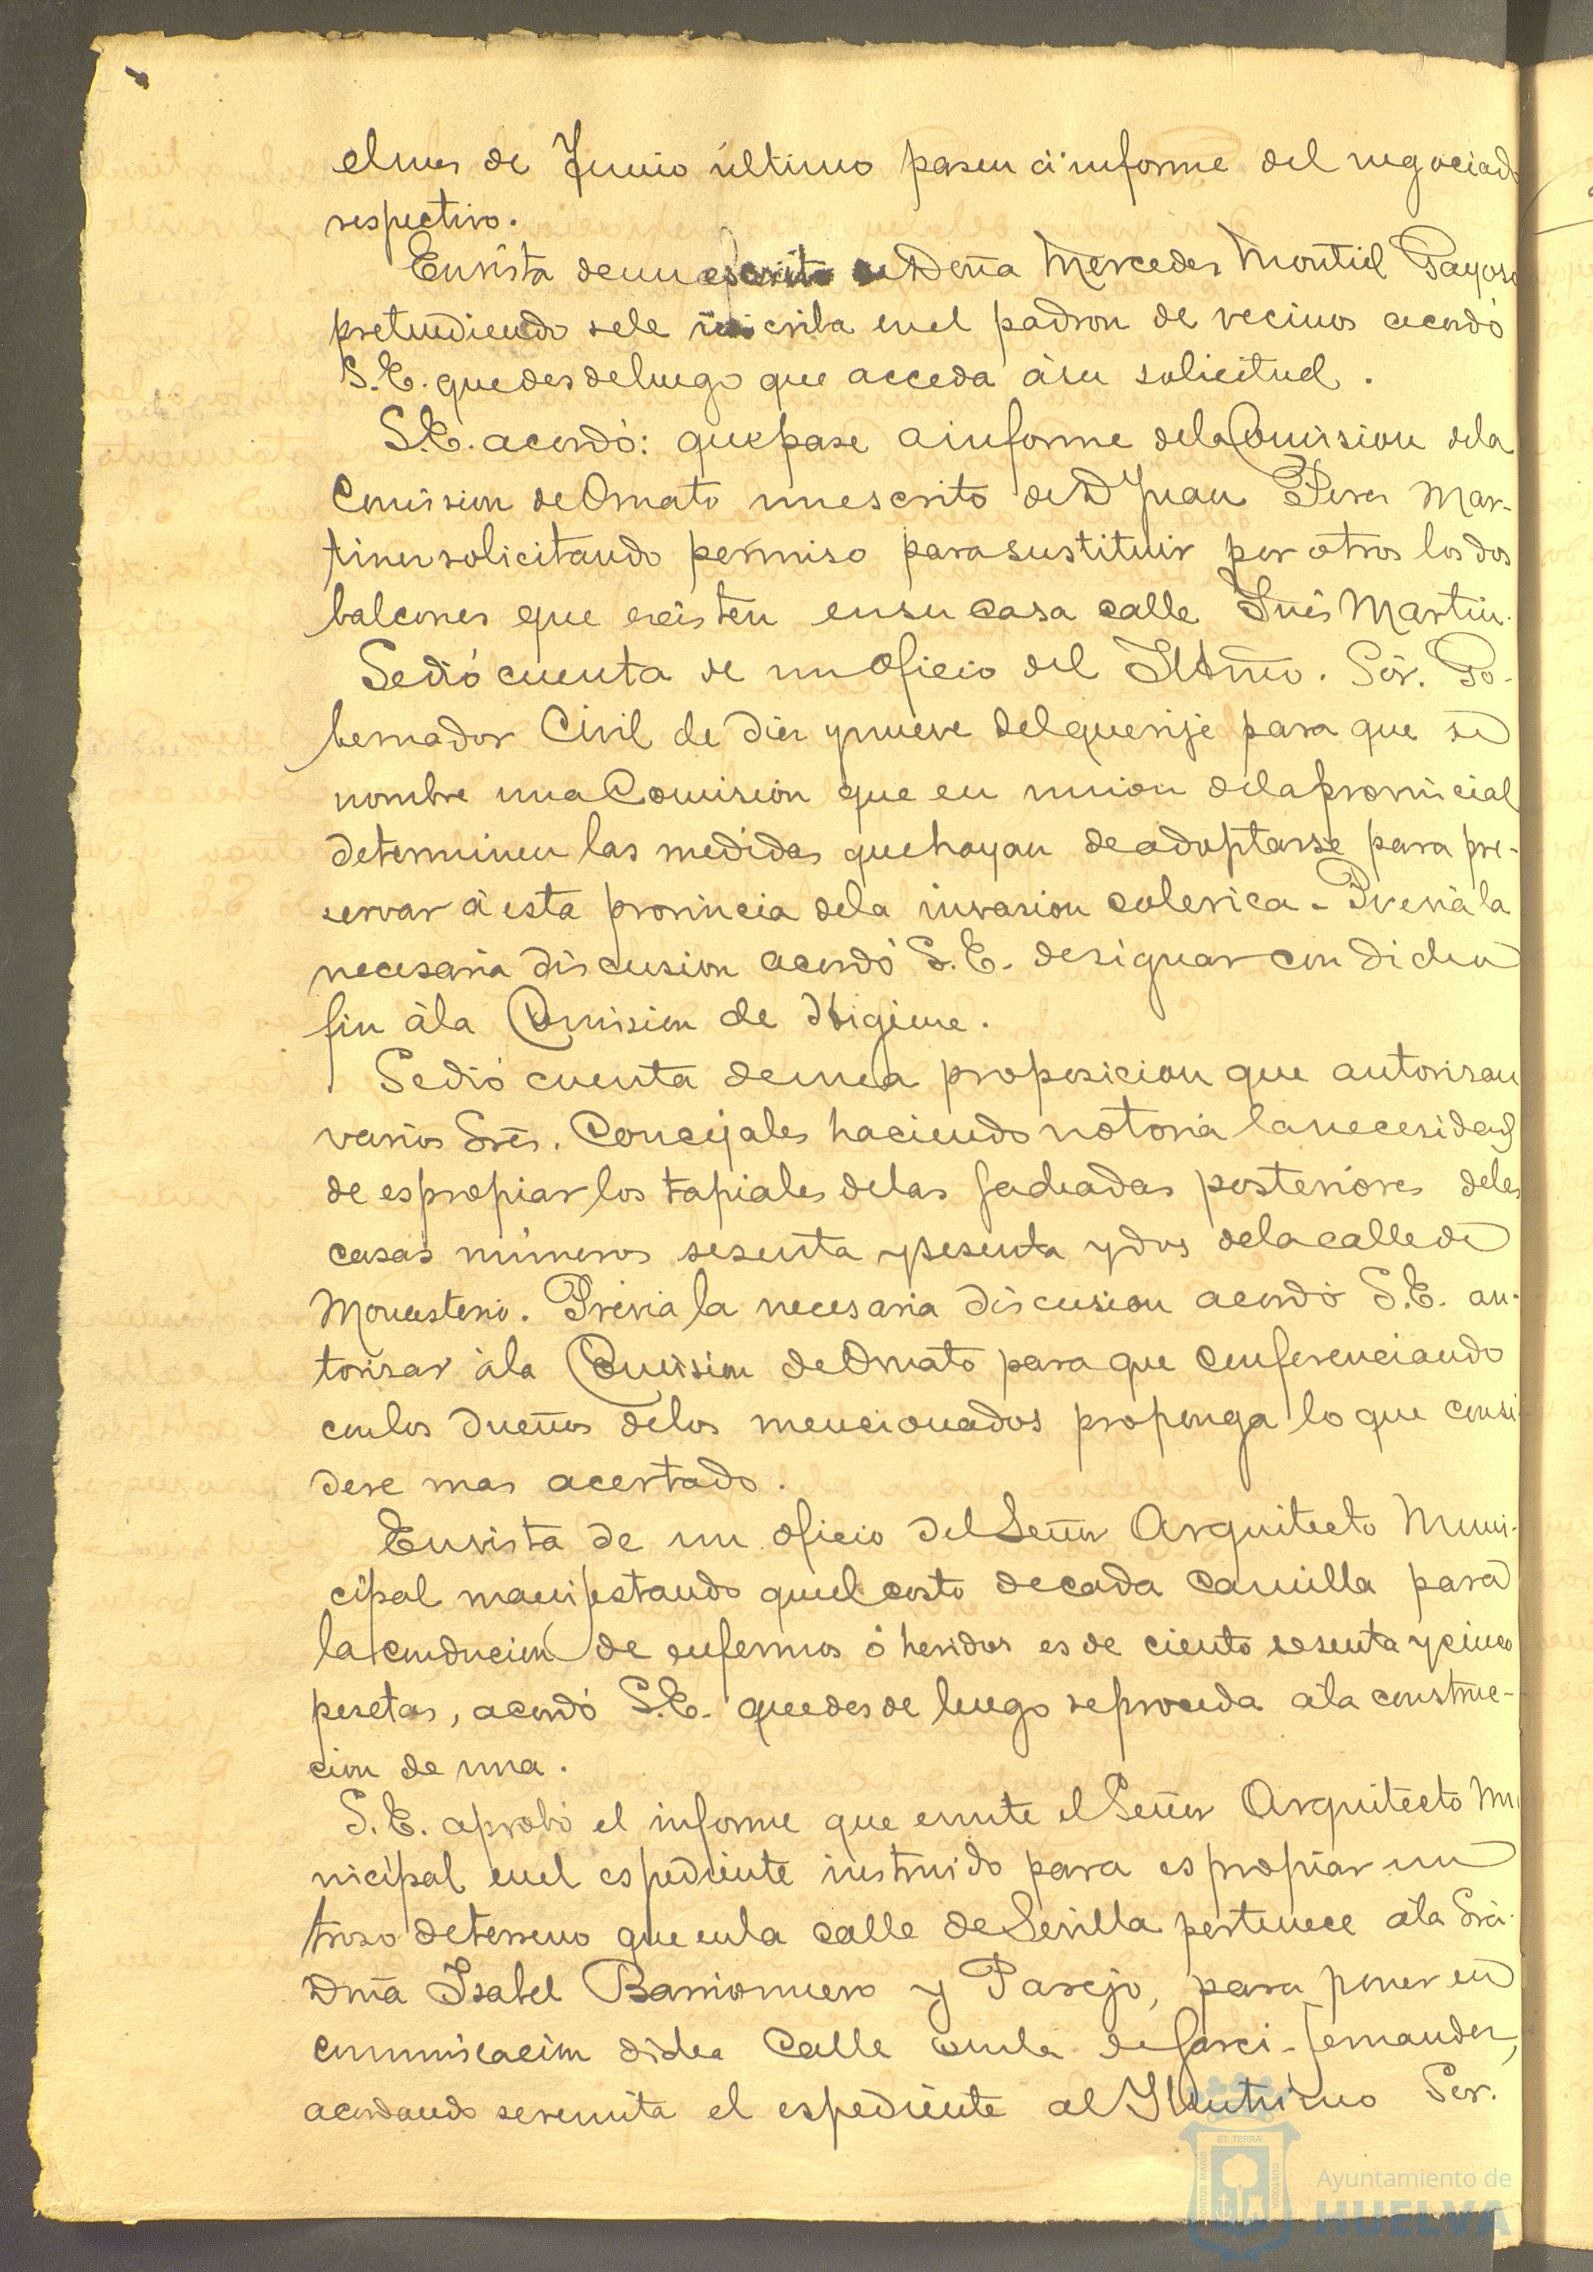 el mes de Junio último pasen á informe del negociado
respectivo.
En vista de un escrito de Doña Mercedes Montiel Gayoso
pretendiendo se le inscriba en el padron de vecinos acordó
S.E. que desde luego que acceda á su solicitud.
S.E. acordó: que pase a informe de la Comision de la
Comision de Ornato un escrito de D Juan Peres Mar-
tines solicitando permiso para sustituir por otros los dos
balcones que existen en su casa calle Inés Martin.
Se dió cuenta de un Oficio del Iltmo. Sór. Go-
bernador Civil de dies y nueve del que rije para que se
nombre una Comision que en union de la provincial
determinen las medidas que hayan de adoptarse para pre-
servar á esta provincia de la invasion colerica - Previa la
necesaria discusion acordó S.E. designar con dicho
fin á la Comision de Higiene.
Se dió cuenta de una proposicion que autorisan
varios Sres. Concejales haciendo notoria la necesidad
de espropiar los tapiales de las fachadas posteriores de las
casas números sesenta y sesenta y dos de la calle de
Monasterio. Previa la necesaria discusion acordó S.E. au-
torisar á la Comision de Ornato para que conferenciando
con los dueños de los mencionados proponga lo que consi
dere mas acertado.
En vista de un oficio del Señor Arquitecto Muni-
cipal manifestando que el costo de cada camilla para
la conducion de enfermos ó heridos es de ciento sesenta y cinco
pesetas, acordó S.E. que desde luego se proceda á la construc-
cion de una.
S.E. aprobó el informe que emite el Señor Arquitecto Mu
nicipal en el espediente instruido para espropiar un
troso de terreno que en la calle de Sevilla pertenece á la Srá.
Dña Isabel Barrionuevo y Parejo, para poner en
comunicacion dicha Calle con la de Garci-fernandez,
acordando se remita el espediente al Ilustrisimo Sor.
ET TERRÆ
PORTUS MARIS
CUSTODIA
Ayuntamiento de
HUELVA